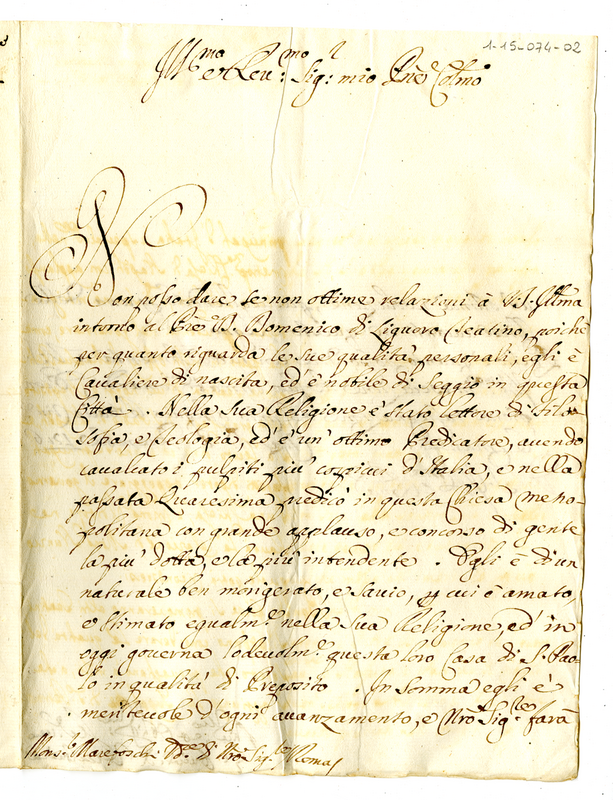 1-15-074-02
Ill.mo e Rev.mo Sig.r mio P̃ne Colmo
Non posso dare se non ottime relazioni à V.S. Illma
intorno al Pre D. Domenico di Liguoro Teatino, poiche
per quanto riguarda le sue qualità personali, egli è
Cavaliere di nascita, ed è nobile di Seggio in questa
Città. Nella sua Religione è stato lettore di Filo-
sofia, e Teologia, ed è un' ottimo Predicatore, avendo
cavalcato i pulpiti più cospicui d'Italia, e nella
passata Quaresima predicò in questa Chiesa Metro-
politana con grande applauso, e concorso di gente
la più dotta, e la più intendente. Egli è di un
naturale ben morigerato, e savio, p cui è amato,
e stimato egualm.te nella sua Religione, ed in
oggi governa lodevolm.te questa loro Casa di S. Pao-
lo in qualità di Preposito. In somma egli è
meritevole d'ogni avanzamento, e Nro Sig.re farà
Mons.r Marefoschi di Nro Sig.re Roma